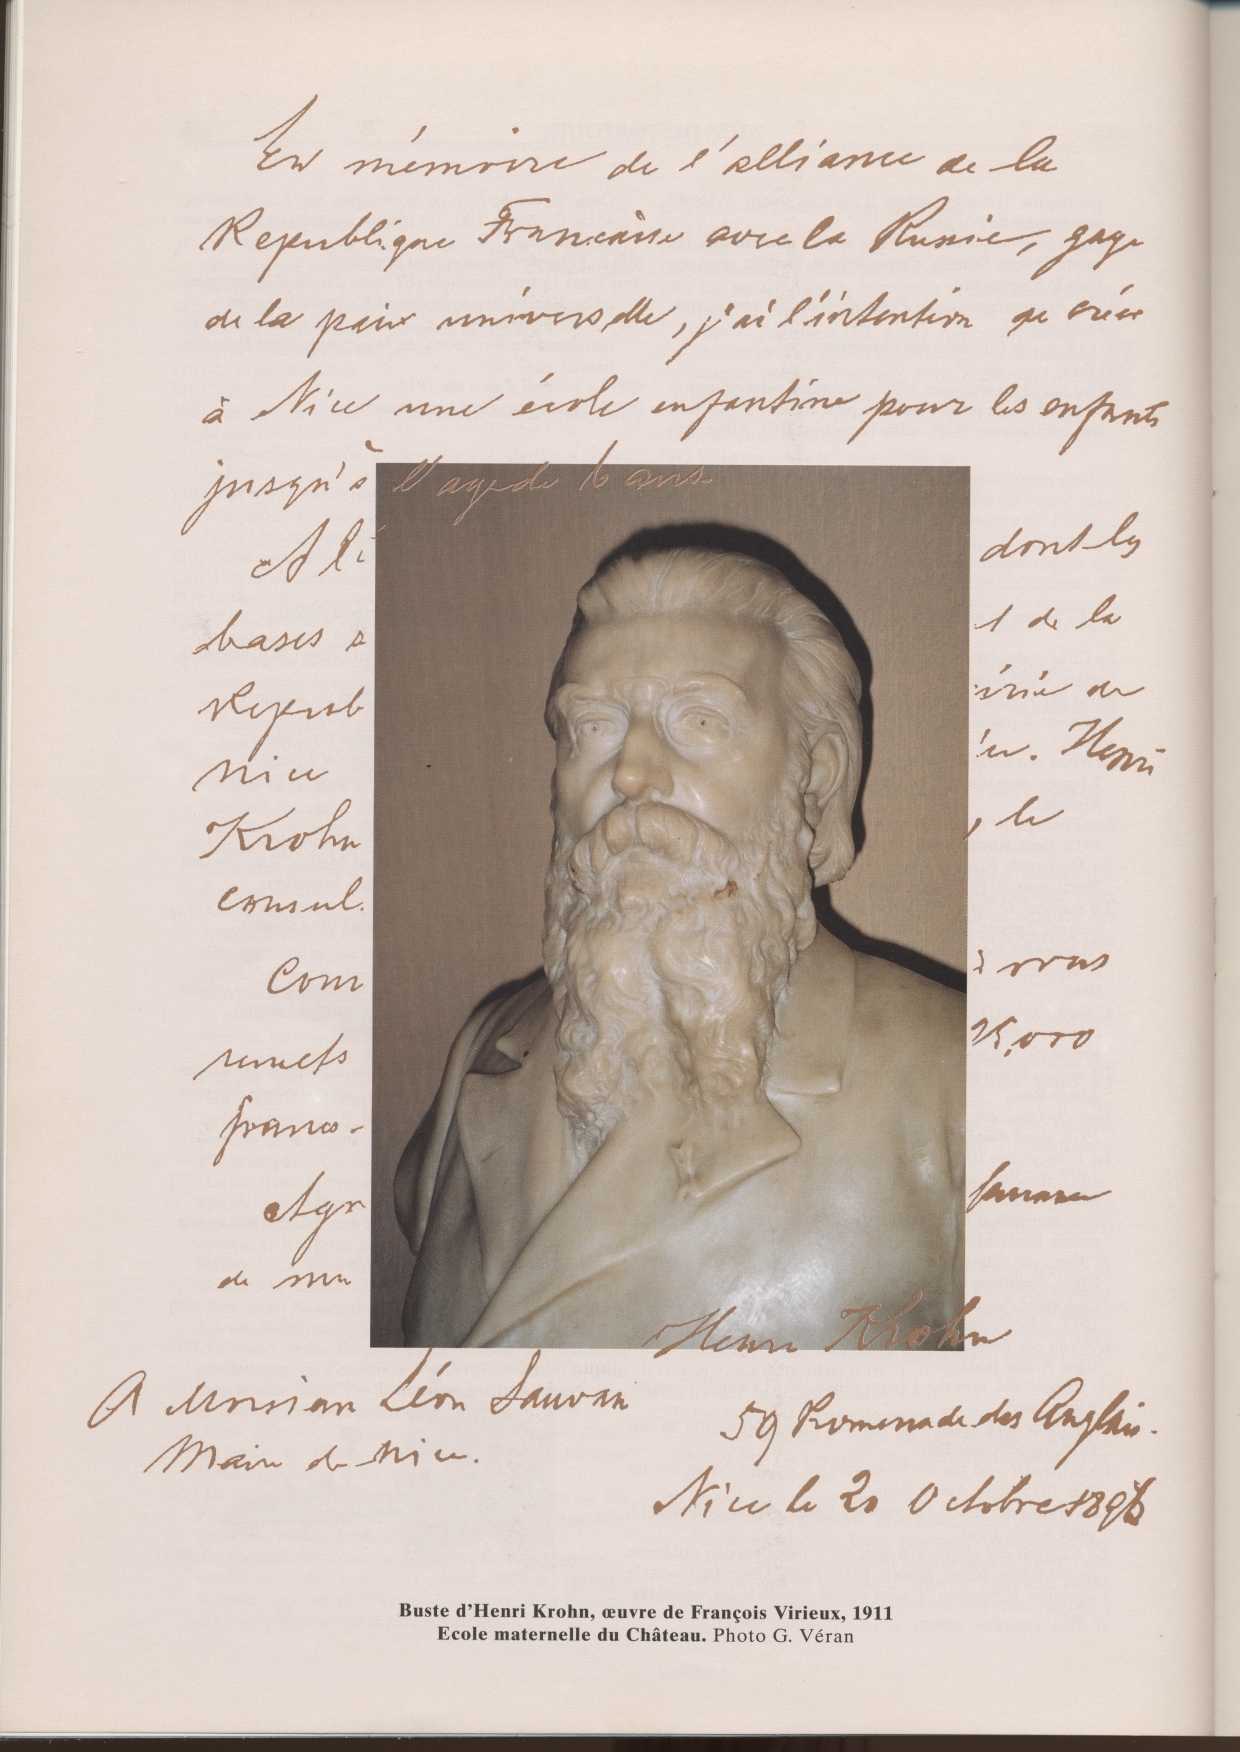 En mémoire de l'alliance de la
Republique Francaise avec la Russie, gage
de la paix universelle, j'ai l'intention de créer
à Nice une école enfantine pour les enfants
jusqu'à l'age de 6 ans
A dont les
bases de la
Repub de
Nice Henri
Krohn , le
consul
Com à vous
remets 25,000
francs
Agr
de
Henri Krohn
A Monsieur Léon Sauvan
59 Promenade des Anglais.
Maire de Nice.
Nice le 20 Octobre 1896
Buste d'Henri Krohn, œuvre de François Virieux, 1911
Ecole maternelle du Château. Photo G. Véran